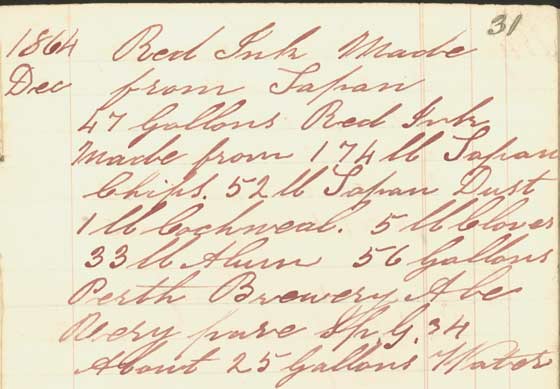 31
1864 Red Ink Made
Dec from Japan
47 Gallons Red Ink
Made from 174 lb Japan
Chips. 52 lb Japan Dust
1 lb Cochneal. 5 lb Cloves
33 lb Alum 56 Gallons
Perth Brewery Ale
Very pure Sp G. 34
About 25 Gallons Water